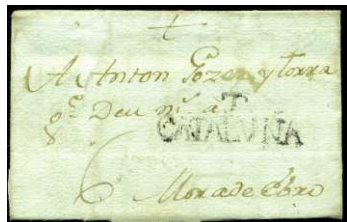 A Anton Pozer y torra
g.e Deu m.s a.s
T.
CATALUÑA
6
Mora de Ebro